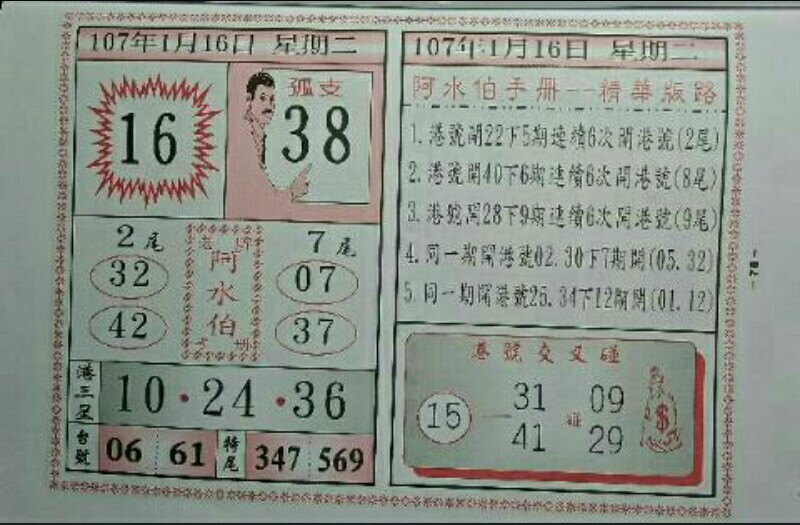 107年1月16日 星期二
16
孤支
38
2尾
32
42
老牌
阿水伯
手冊
7尾
07
37
港三星
10·24·36
台號
06 61
特尾
347 569
107年1月16日 星期二
阿水伯手冊--精華版路
1.港號開22下5期連續6次開港號(2尾)
2.港號開40下6期連續6次開港號(8尾)
3.港號開28下9期連續6次開港號(9尾)
4.同一期開港號02.30下7期開(05.32)
5.同一期開港號25.34下12期開(01.12)
港號交叉碰
15
31 09
碰
41 29
$